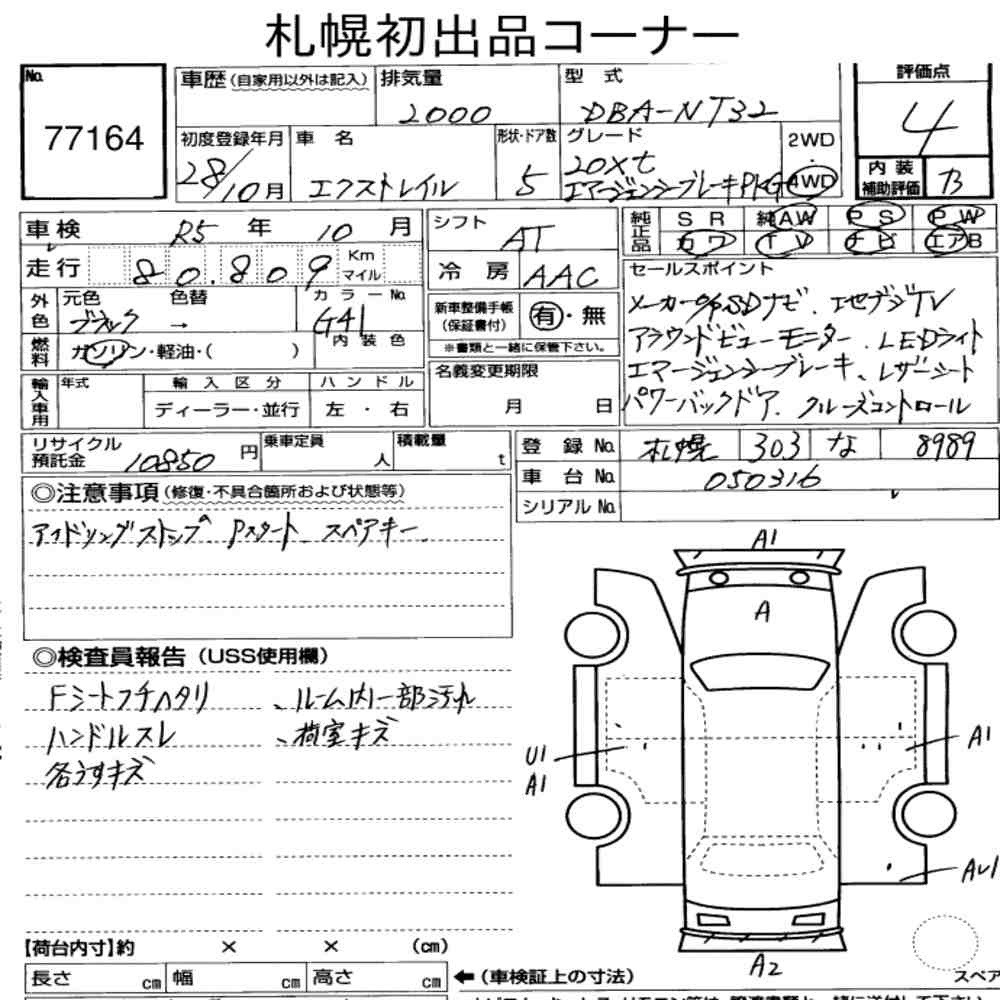 札幌初出品コーナー
No. 77164
車歴(自家用以外は記入) 排気量 2000 型式 DBA-NT32 評価点 4
初度登録年月 28/10月 車名 エクストレイル 形状・ドア数 5 グレード 20Xt エマージェンシーブレーキPKG 2WD・4WD
内装補助評価 B
車検 R5年 10月
走行 80.809 Km マイル
外色 元色 ブラック 色替 → カラーNo. G41
燃料 ガソリン・軽油・( ) 内装色
輸入車用 年式 輸入区分 ハンドル
ディーラー・並行 左・右
シフト AT
冷房 AAC
新車整備手帳(保証書付) 有・無
※書類と一緒に保管下さい。
名義変更期限
月 日
純正品 SR 純AW PS PW
カワ TV ナビ エアB
セールスポイント
メーカーOP.SDナビ.エセブジTV
アラウンドビューモニター.LEDライト
エマージェンシーブレーキ、レザーシート
パワーバックドア.クルーズコントロール
リサイクル預託金 10850円 乗車定員 人 積載量 t
登録No. 札幌 303 な 8989
車台No. 050316
シリアルNo.
◎注意事項(修復・不具合箇所および状態等)
アイドリングストップ Pスタート スペアキー
◎検査員報告(USS使用欄)
Fシートフチハタリ 、ルーム内一部汚れ
ハンドルスレ 、荷室キズ
各うすキズ
A1
A
U1
A1
A1
AU1
A2
【荷台内寸】約 × × (cm)
長さ cm 幅 cm 高さ cm ←(車検証上の寸法)
スペア